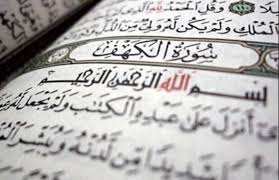 وَقُلِ الْحَمْدُ لِلَّهِ
الْمُلْكِ وَلَمْ يَكُن لَّهُ وَلِيٌّ
سُورَةُ الْكَهْفِ
بِسْمِ اللَّهِ الرَّحْمَٰنِ الرَّحِيمِ
أَنزَلَ عَلَىٰ عَبْدِهِ الْكِتَابَ وَلَمْ يَجْعَل لَّهُ
شَدِيدًا مِّن لَّدُنْهُ وَيُبَشِّرَ